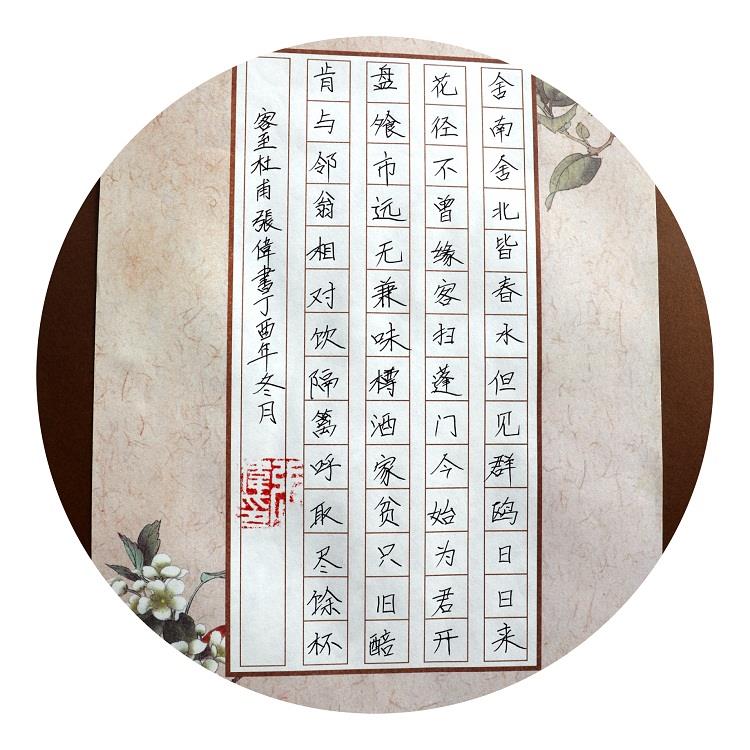 舍南舍北皆春水但见群鸥日日来
花径不曾缘客扫蓬门今始为君开
盘飧市远无兼味樽酒家贫只旧醅
肯与邻翁相对饮隔篱呼取尽馀杯
客至杜甫張偉書丁酉年冬月